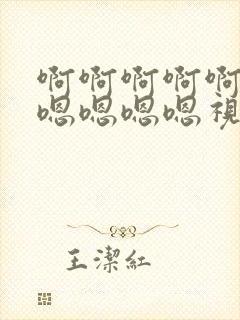 啊啊啊啊啊
嗯嗯嗯嗯視
王潔紅